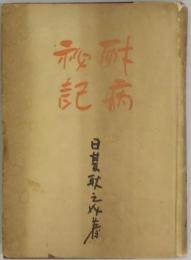 耐病
祕記
日夏耿之介著